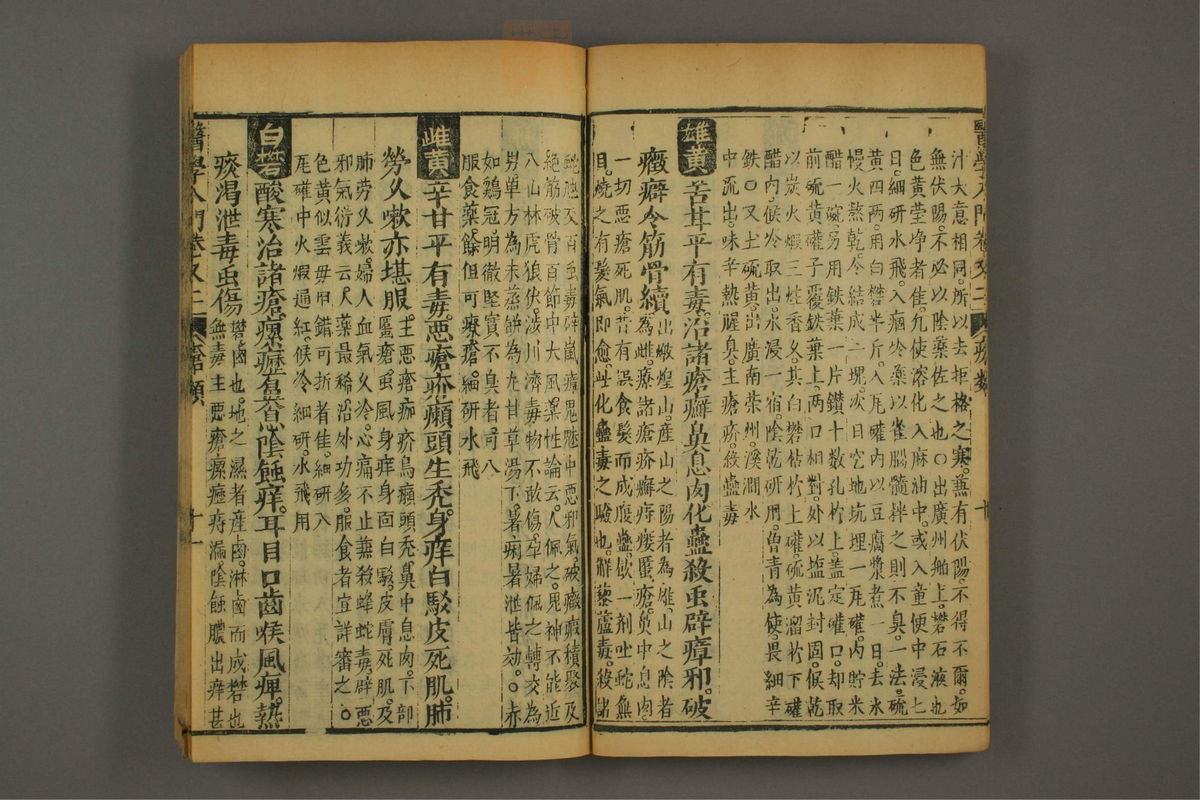 醫學入門卷之二 瘡類 十
汁大意相同所以去拒格之寒蒸有伏陽不得不爾如
無伏陽不必以陰藥佐之也○出廣州舶上礬石液也
色黃瑩净者佳凡使溶化入麻油中或入童便中浸七
日細研水飛入痼冷藥以雀腦髓拌之則不臭一法硫
黃四兩用白礬半斤入瓦礶內以豆腐漿煮一日去水
慢火熬乾令結成一塊次日空地坑埋一瓦礶內貯米
醋一碗另用鉄葉一片鑽十數孔於上盖定礶口却取
前硫黃礶子覆鉄葉上兩口相對外以塩泥封固候乾
以炭火煅三炷香久其白礬枯於上礶硫黃溜於下礶
醋內候冷取出水浸一宿陰乾研用曽青為使畏細辛
鉄○又土硫黃出廣南榮州溪澗水
中流出味辛熱腥臭主瘡疥殺蠱毒
雄黃 苦甘平有毒治諸瘡癬鼻息肉化蠱殺虫辟瘴邪破
癥癖令筋骨續
出燉煌山產山之陽者為雄山之陰者
為雌療諸瘡疥癬痔瘻䘌瘡鼻中息肉
一切惡瘡死肌昔有誤食髮而成腹蠱飲一劑吐蛇無
目燒之有髮氣即愈此化蠱毒之驗也解藜蘆毒殺諸
蛇虺及百虫毒辟嵐瘴鬼魅中惡邪氣破癥瘕積聚及
絕筋破骨百節中大風藥性論云人佩之鬼神不能近
入山林虎狼伏涉川濟毒物不敢傷孕婦佩之轉女為
男單方為末蒸餅為丸甘草湯下暑痢暑泄皆効○赤
如鷄冠明徹堅實不臭者可入
服食藥餘但可療瘡細研水飛
雌黃 辛甘平有毒惡瘡疥癩頭生禿身痒白駁皮死肌肺
勞久嗽亦堪服
主惡瘡痂疥烏癩頭禿鼻中息肉下部
䘌瘡虫風身痒身面白駁皮膚死肌及
肺勞久嗽婦人血氣久冷心痛不止兼殺蜂蛇毒辟惡
邪氣衍義云入藥最稀治外功多服食者宜詳審之○
色黃似雲母甲錯可折者佳細研入
瓦礶中火煅通紅候冷細研水飛用
白礬 酸寒治諸瘡瘰癧鼻息陰蝕痒耳目口齒喉風痺熱
痰渴泄毒虫傷
礬鹵也地之濕者産鹵淋鹵而成礬也
無毒主惡瘡瘰癧痔漏陰蝕膿出痒甚
醫學入門卷之二 瘡類 十一